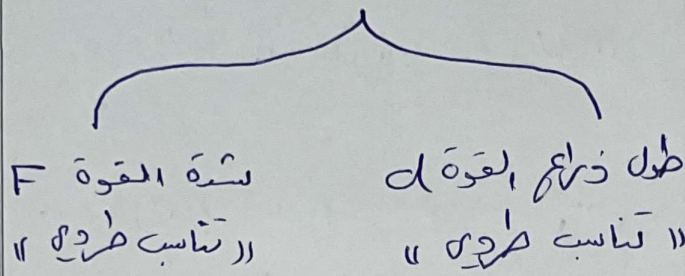 طول ذراع القوة d
« تناسب طردي »
شدة القوة F
« تناسب طردي »